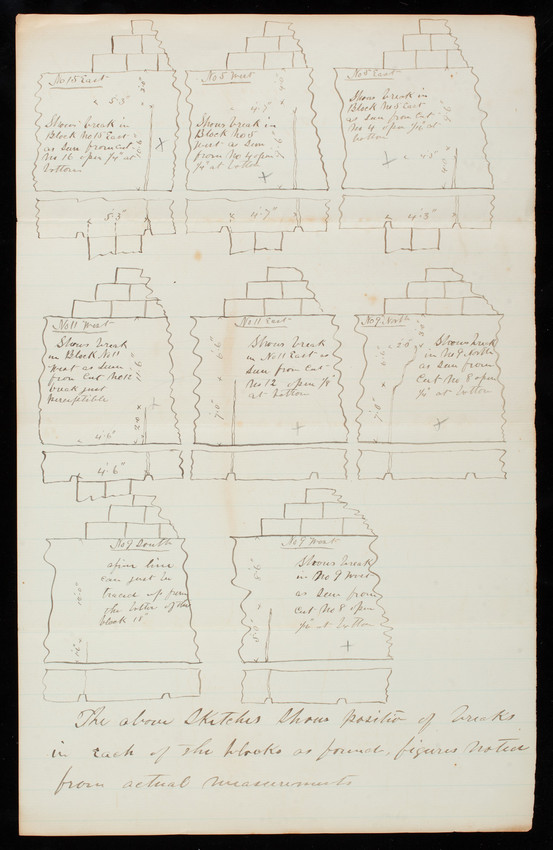 No 15 East
5'3"
Shows break in
Block No 15 East
as seen from Cut
No 16 open 1/4" at
bottom
5'3"
No 5 West
4'7"
Shows break in
Block No 5
West as seen
from No 4 open
1/4" at bottom
4'7"
No 5 East
Shows break in
Block No 5 East
as seen from Cut
No 4 open 1/4" at
bottom
4'3"
No 11 West
Shows break
in Block No 11
West as seen
from Cut No 12
break just
perceptible
4'6"
4'6"
No 11 East
Shows break
in No 11 East as
seen from Cut
No 12 open 1/8"
at bottom
No 9 North
Shows break
in No 9 North
as seen from
Cut No 8 open
at bottom
No 9 South
line
can just be
traced up from
the bottom of the
block 18"
No 9 West
Shows break
in No 9 West
as seen from
Cut No 8 open
at bottom
The above Sketches Shows position of breaks
in each of the blocks as found, figures noted
from actual measurements